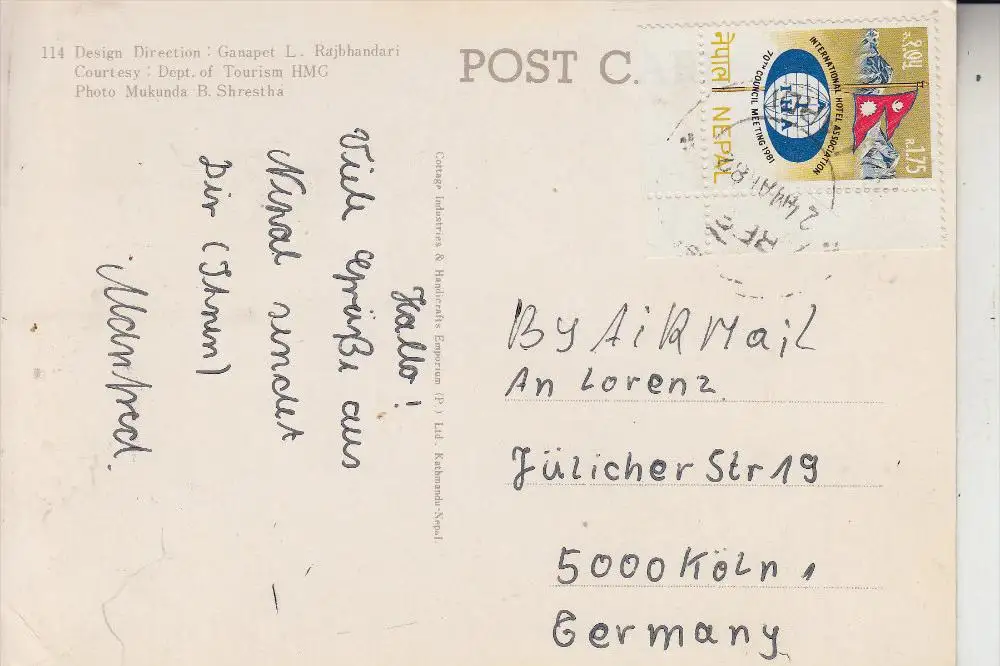 114 Design Direction : Ganapet L. Rajbhandari
Courtesy : Dept. of Tourism HMG
Photo Mukunda B. Shrestha
POST C
Hallo!
Viele Grüße aus
Nepal sendet
Dir (Ihnen)
Manfred.
Cottage Industries & Handicrafts Emporium (P.) Ltd. Kathmandu-Nepal.
नेपाल NEPAL
INTERNATIONAL HOTEL ASSOCIATION
70TH COUNCIL MEETING 1981
IHA
1.75
By AiRMail
An Lorenz
Jülicher Str 19
5000 Köln 1
Germany